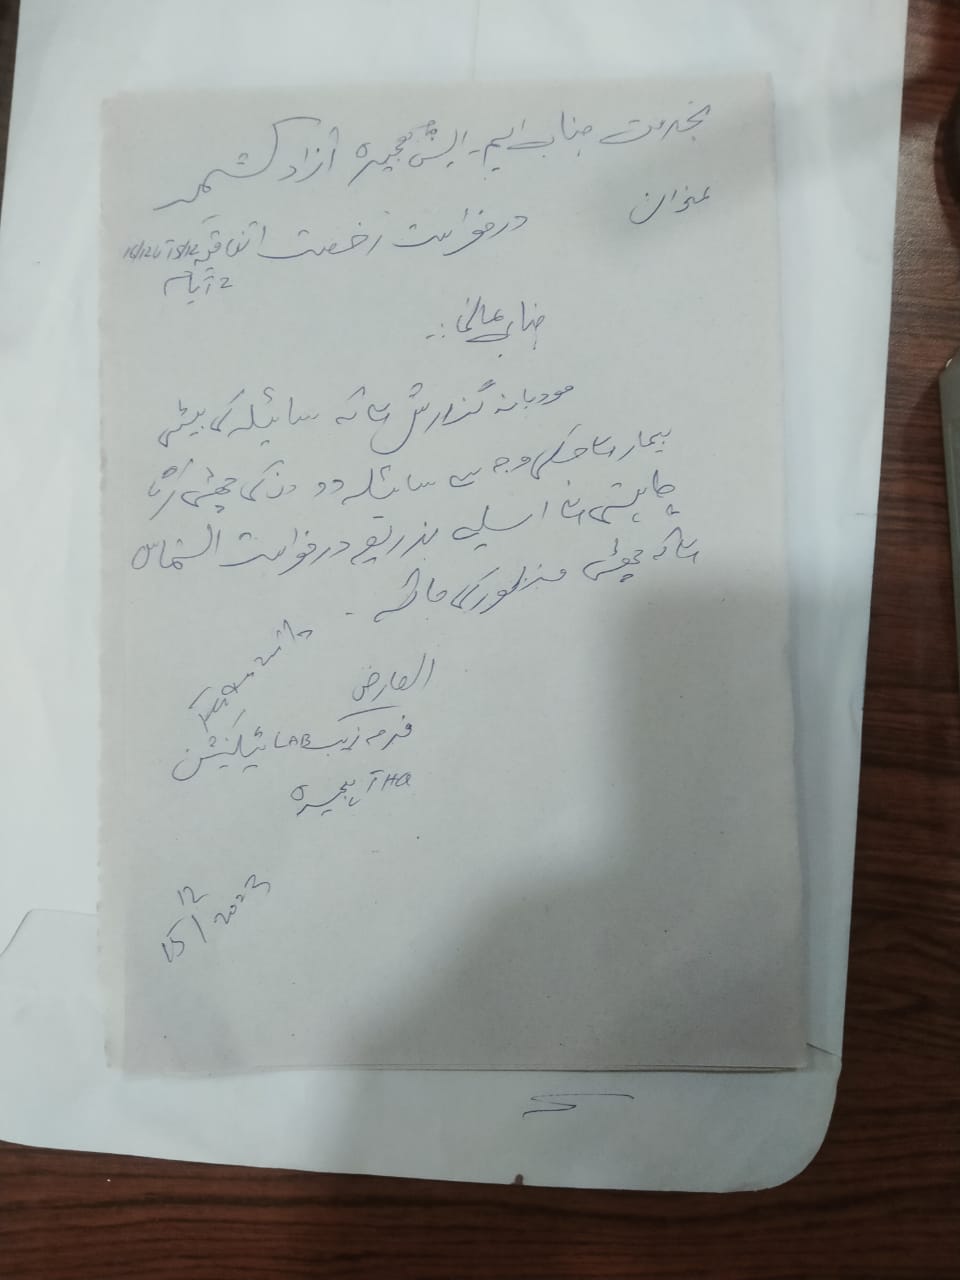 بخدمت جناب ایم۔ ایس ہجیرہ آزاد کشمیر
عنوان درخواست رخصت اتفاقیہ 15/12 تا 16/12
2 ایام
جناب عالی:۔
مودبانہ گزارش ہے کہ سائیلہ کی بیٹی
بیمار ہے جسکی وجہ سے سائیلہ دو دن کی چھٹی کرنا
چاہتی ہے اسلیے بذریعے درخواست التماس
ہے کہ چھٹی منظور کی جائے۔
العارض
LAB ٹیکنیشن
THQ ہجیرہ
15/12 2023